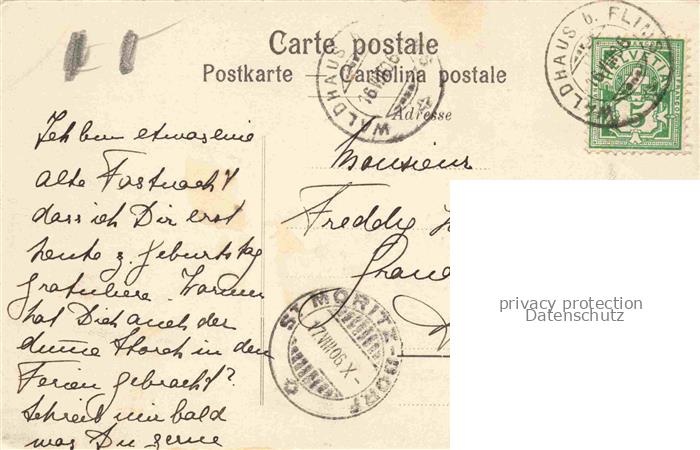 Carte postale
Postkarte — Cartolina postale
Adresse
WALDHAUS b. FLIMS
16 VIII 06
WALDHAUS b. FLIMS
HELVETIA
5
Ich bin etwas eine
alte Fastnacht
dass ich Dir erst
heute z. Geburtstag
gratuliere. Warum
hat Dich auch der
dumme Storch in den
Ferien gebracht?
Schreib mir bald
was Du gerne
Monsieur
Freddy
Grand
ST MORITZ-DORF
17 VIII 06 X-
privacy protection
Datenschutz